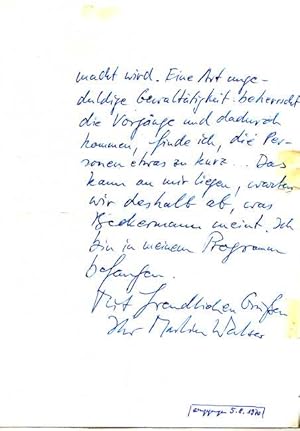 macht wird. Eine Art unge-
duldige Gewalttätigkeit beherrscht
die Vorgänge und dadurch
kommen, finde ich, die Per-
sonen etwas zu kurz... Das
kann an mir liegen, warten
wir deshalb ab, was
Beckermann meint. Ich
bin in meinem Programm
befangen.
Mit freundlichen Grüßen
Ihr Martin Walser
5.8.1970